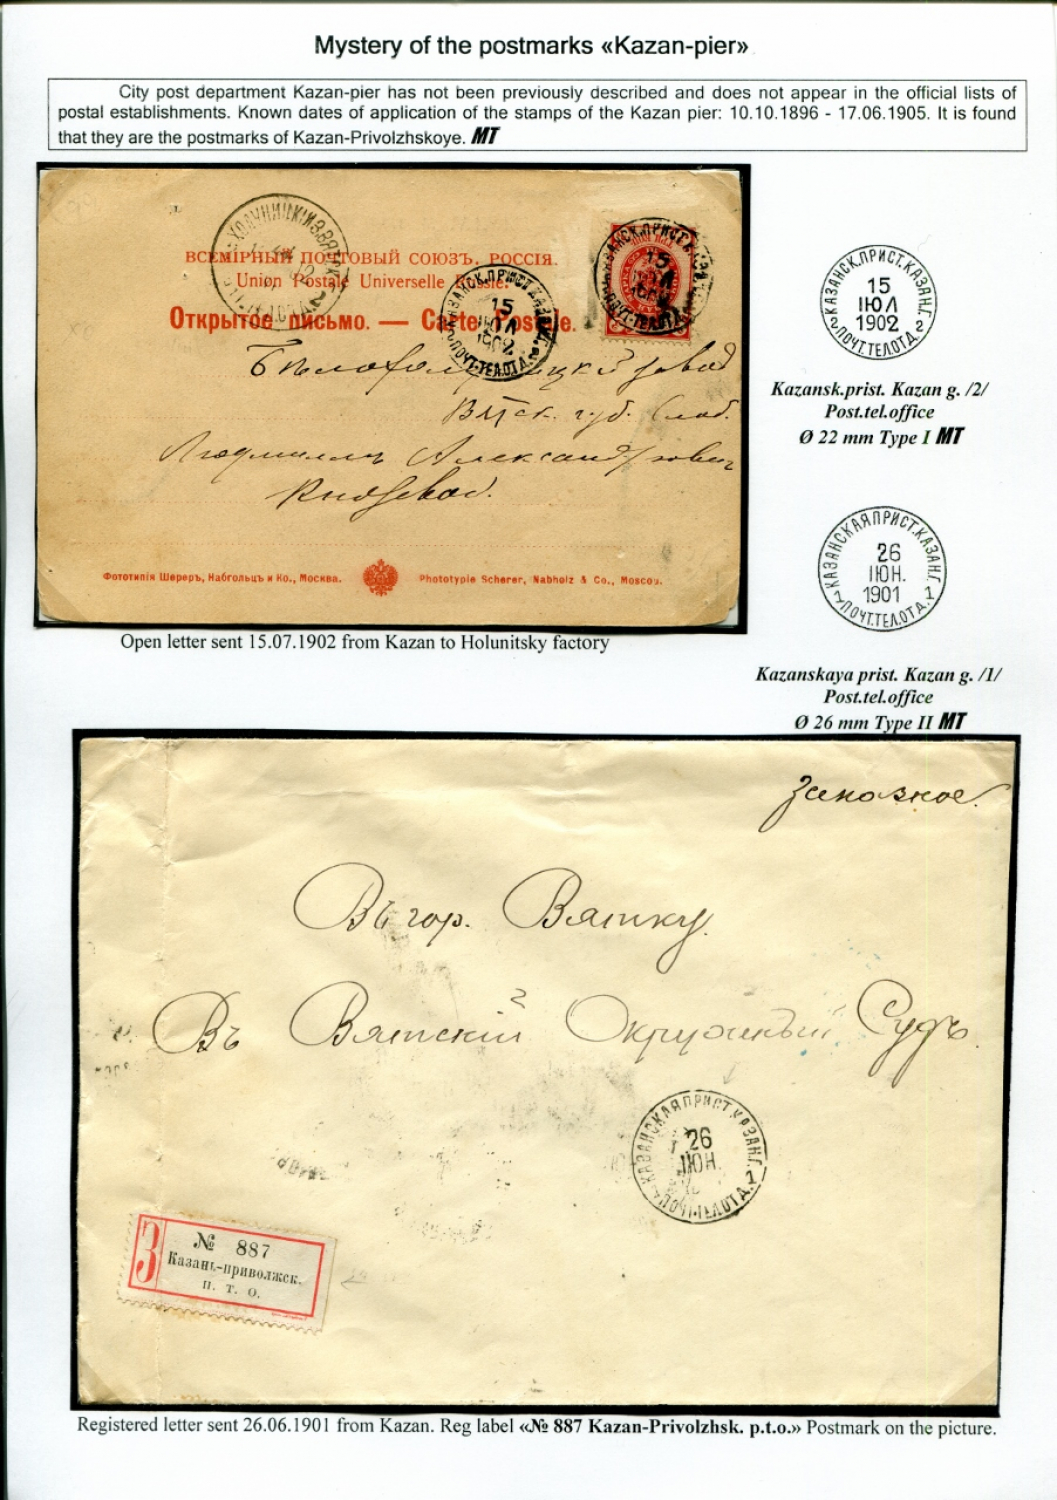 Mystery of the postmarks «Kazan-pier»
City post department Kazan-pier has not been previously described and does not appear in the official lists of
postal establishments. Known dates of application of the stamps of the Kazan pier: 10.10.1896 - 17.06.1905. It is found
that they are the postmarks of Kazan-Privolzhskoye. MT
ВСЕМІРНЫЙ ПОЧТОВЫЙ СОЮЗЪ. РОССІЯ.
Union Postale Universelle Russie.
Открытое письмо. — Carte Postale.
КАЗАНСК.ПРИСТ.КАЗАН.Г.
15
ІЮЛ
1902
2 ПОЧТ.ТЕЛ.ОТД. 2
КАЗАНСК.ПРИСТ.КАЗАН.Г.
15
ІЮЛ
1902
ПОЧТ.ТЕЛ.ОТД.
Бѣлохолуницкій завод
Вятск. губ. Слоб.
Людмилѣ Александровнѣ
Князевой.
Фототипія Шереръ, Набгольцъ и Ко., Москва.
Phototypie Scherer, Nabholz & Co., Moscou.
Open letter sent 15.07.1902 from Kazan to Holunitsky factory
КАЗАНСК.ПРИСТ.КАЗАН.Г.
15
ІЮЛ
1902
2 ПОЧТ.ТЕЛ.ОТД. 2
Kazansk.prist. Kazan g. /2/
Post.tel.office
Ø 22 mm Type I MT
КАЗАНСКАЯ ПРИСТ.КАЗАН.Г.
26
ІЮН.
1901
1 ПОЧТ.ТЕЛ.ОТД. 1
Kazanskaya prist. Kazan g. /1/
Post.tel.office
Ø 26 mm Type II MT
Заказное.
Въ гор. Вятку.
Въ Вятскій Окружный Судъ.
КАЗАНСКАЯ ПРИСТ.КАЗАН.Г.
26
ІЮН.
ПОЧТ.ТЕЛ.ОТД. 1
З
№ 887
Казань-приволжск.
п. т. о.
Registered letter sent 26.06.1901 from Kazan. Reg label «№ 887 Kazan-Privolzhsk. p.t.o.» Postmark on the picture.